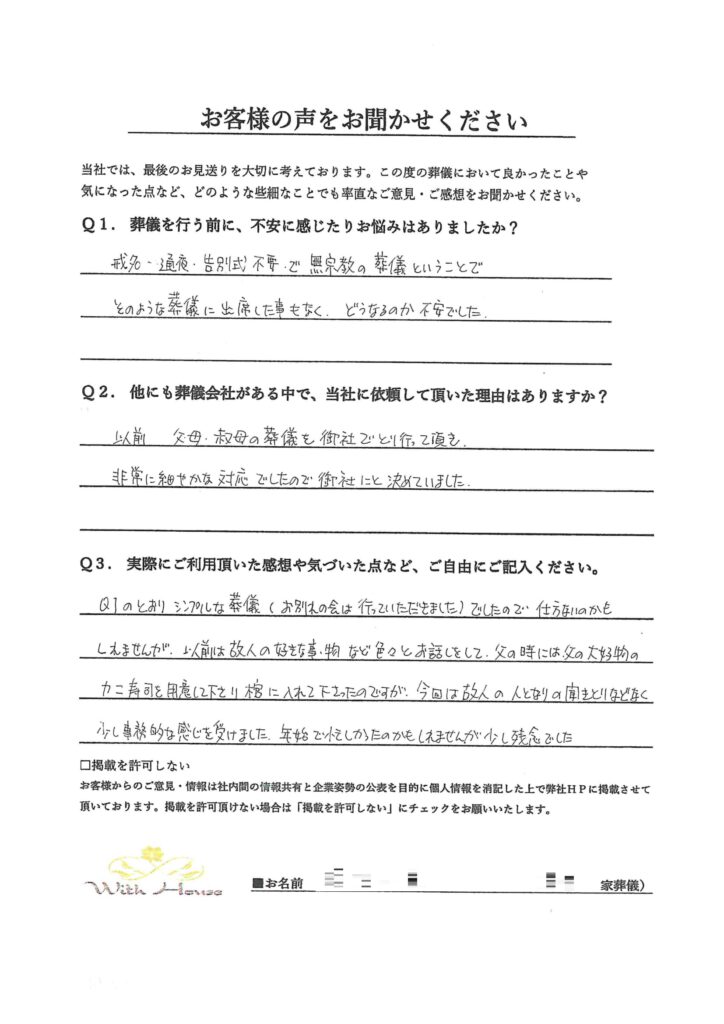 お客様の声をお聞かせください
当社では、最後のお見送りを大切に考えております。この度の葬儀において良かったことや
気になった点など、どのような些細なことでも率直なご意見・ご感想をお聞かせください。
Q1. 葬儀を行う前に、不安に感じたりお悩みはありましたか?
戒名・通夜・告別式不要で無宗教の葬儀ということで
そのような葬儀に出席した事もなく、どうなるのか不安でした。
Q2. 他にも葬儀会社がある中で、当社に依頼して頂いた理由はありますか?
以前 父母・叔母の葬儀を御社でとり行って頂き、
非常に細やかな対応でしたので御社にと決めていました。
Q3. 実際にご利用頂いた感想や気づいた点など、ご自由にご記入ください。
Q1のとおりシンプルな葬儀(お別れの会は行っていただきました)でしたので、仕方ないのかも
しれませんが、以前は故人の好きな事・物など色々とお話しをして、父の時には父の大好物の
カニ寿司を用意して下さり棺に入れて下さったのですが、今回は故人の人となりの聞きとりなどなく
少し事務的な感じを受けました。年始で忙しかったのかもしれませんが少し残念でした
□掲載を許可しない
お客様からのご意見・情報は社内間の情報共有と企業姿勢の公表を目的に個人情報を消記した上で弊社HPに掲載させて
頂いております。掲載を許可頂けない場合は「掲載を許可しない」にチェックをお願いいたします。
With House
■お名前 家葬儀)